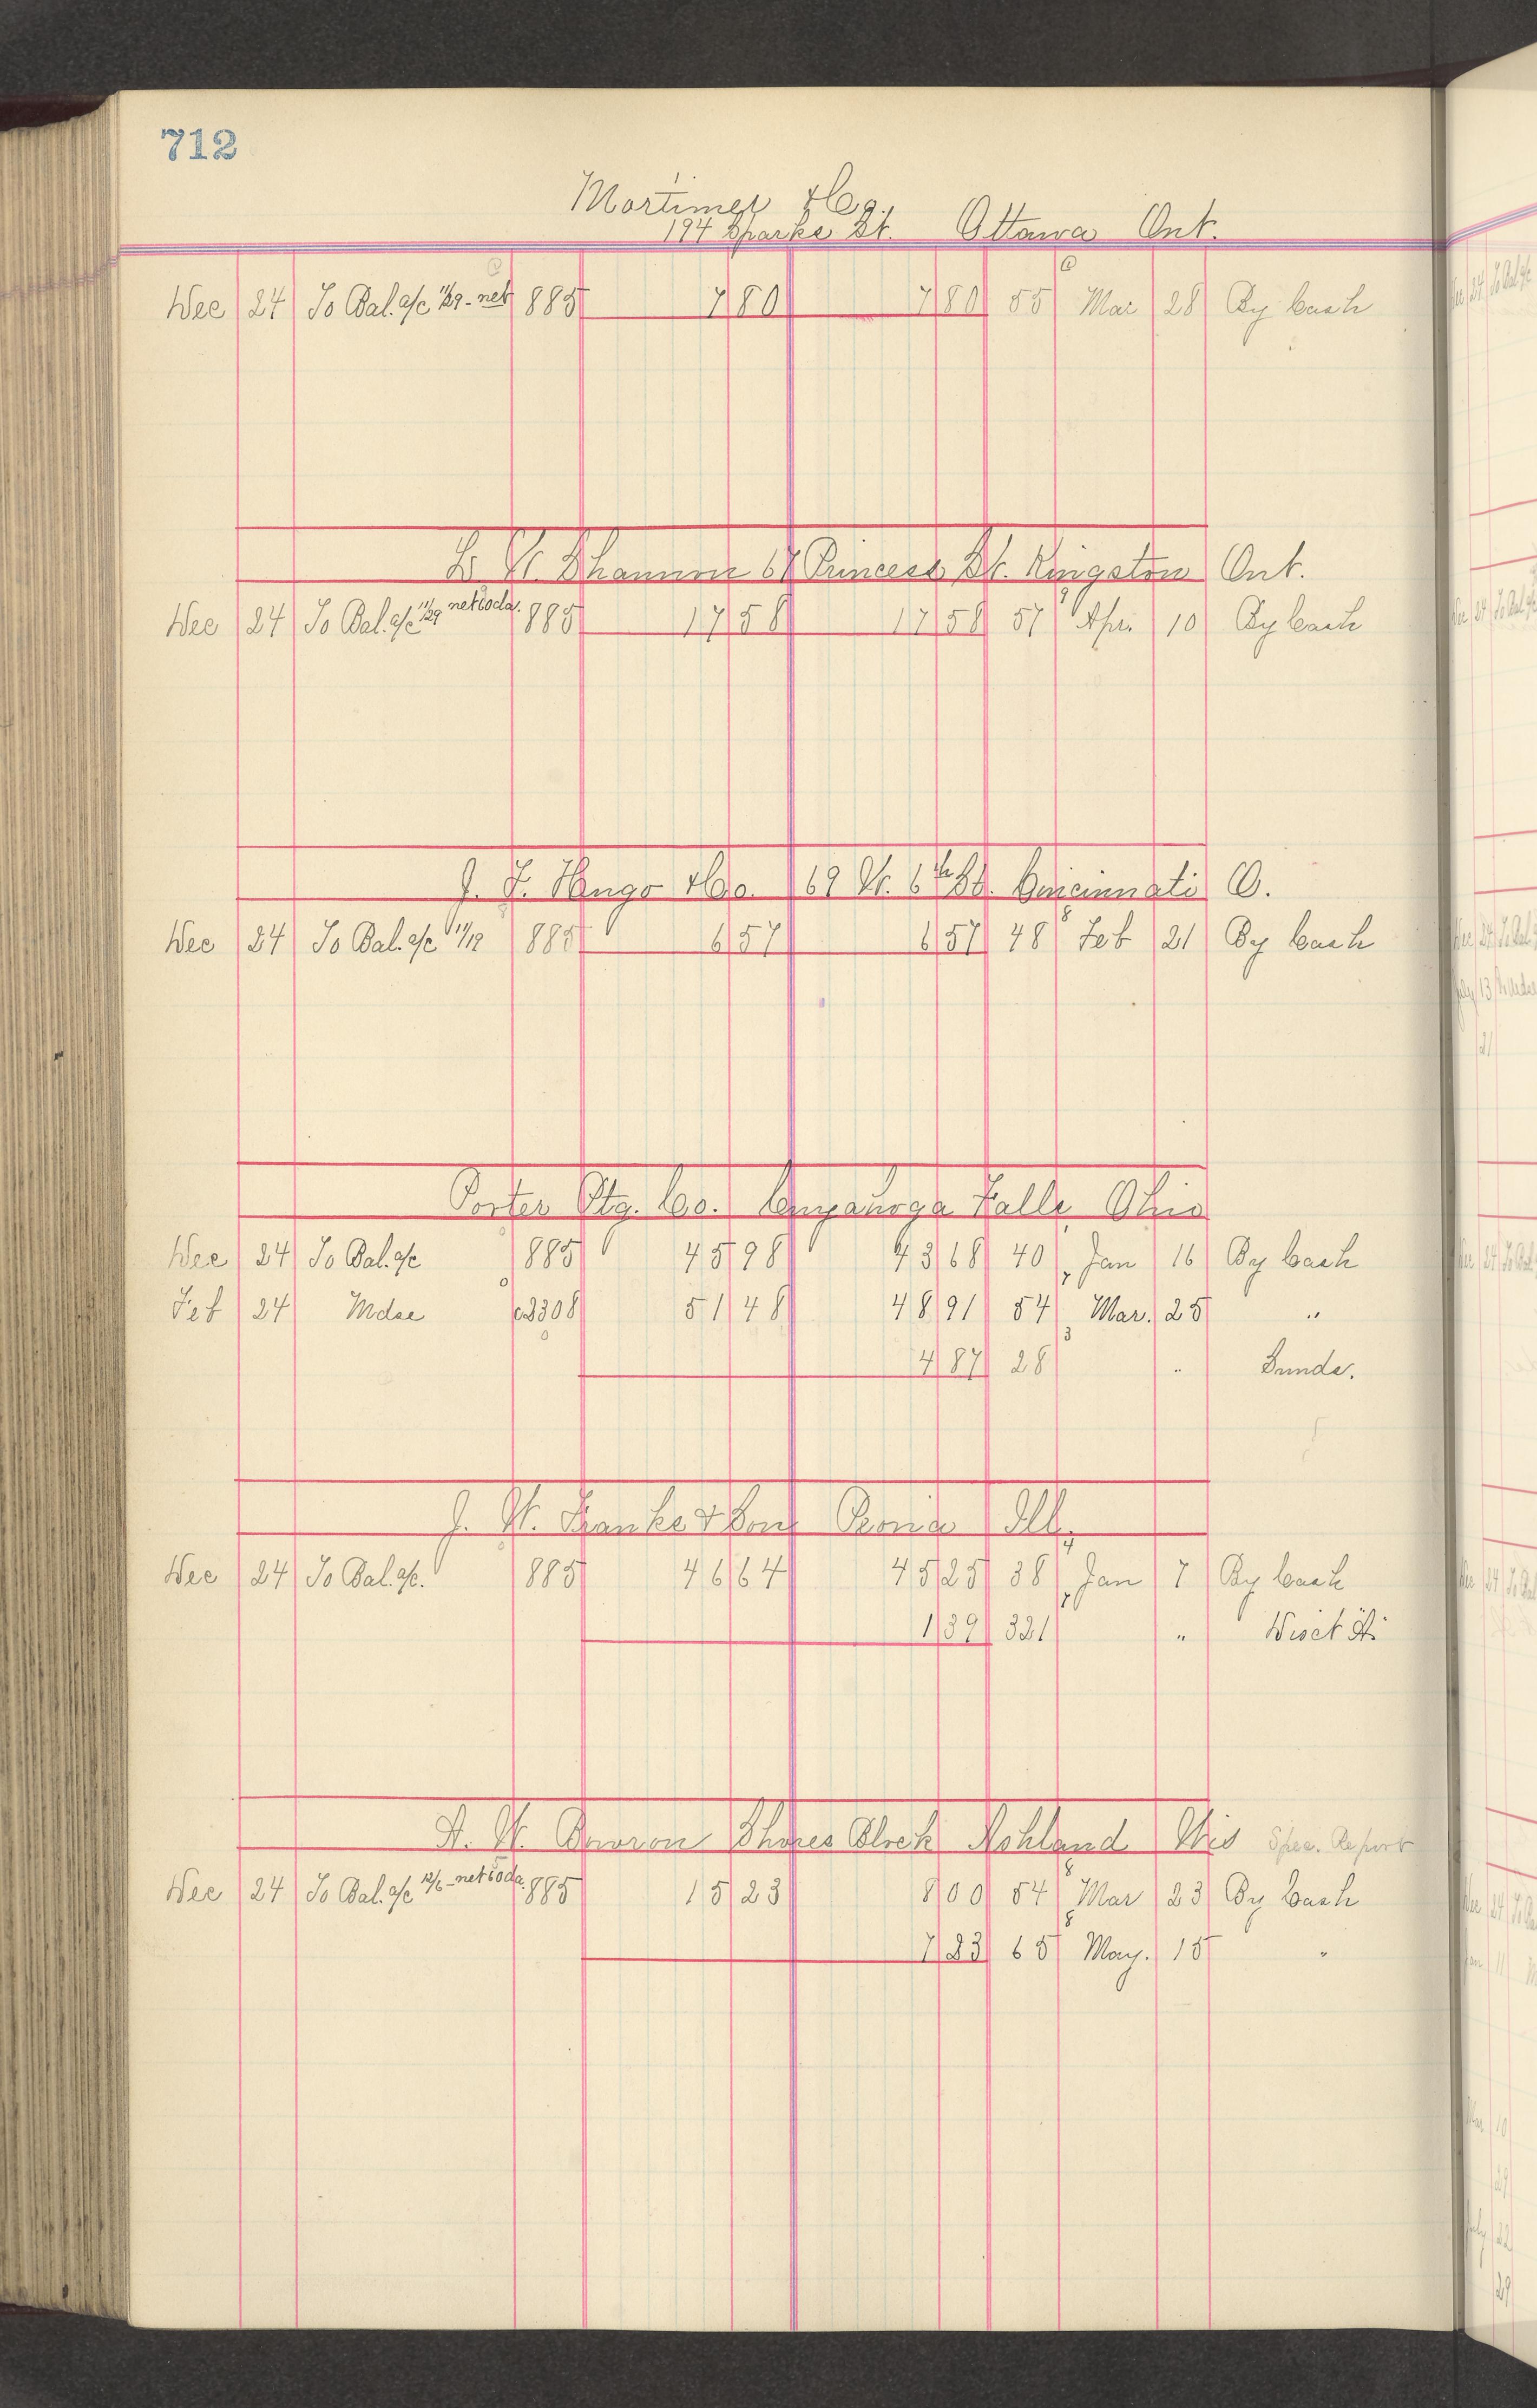 712
Mortimer & Co.
194 Sparks St. Ottawa Ont.
Dec 24 To Bal. a/c 11/29 - net 885 7 80 7 80 55 Mar 28 By Cash
W. Shannon 67 Princess St. Kingston Ont.
Dec 24 To Bal. a/c 11/29 net 60 da. 885 17 58 17 58 57 Apr. 10 By Cash
J. F. Hugo & Co. 69 W. 6th St. Cincinnati O.
Dec 24 To Bal. a/c 11/19 885 6 57 6 57 48 Feb 21 By Cash
Porter Ptg. Co. Cuyahoga Falls Ohio
Dec 24 To Bal. a/c 885 45 98 43 68 40 Jan 16 By Cash
Feb 24 Mdse 2308 51 48 48 91 54 Mar. 25 "
4 87 28 " Sunds.
J. W. Franks & Sons Peoria Ill.
Dec 24 To Bal. a/c. 885 46 64 45 25 38 Jan 7 By Cash
1 39 321 " Disct
A. W. Shores Block Ashland Wis Spec. Report
Dec 24 To Bal. a/c 12/6 - net 60 da. 885 15 23 8 00 54 Mar 23 By Cash
7 23 65 May. 15 "